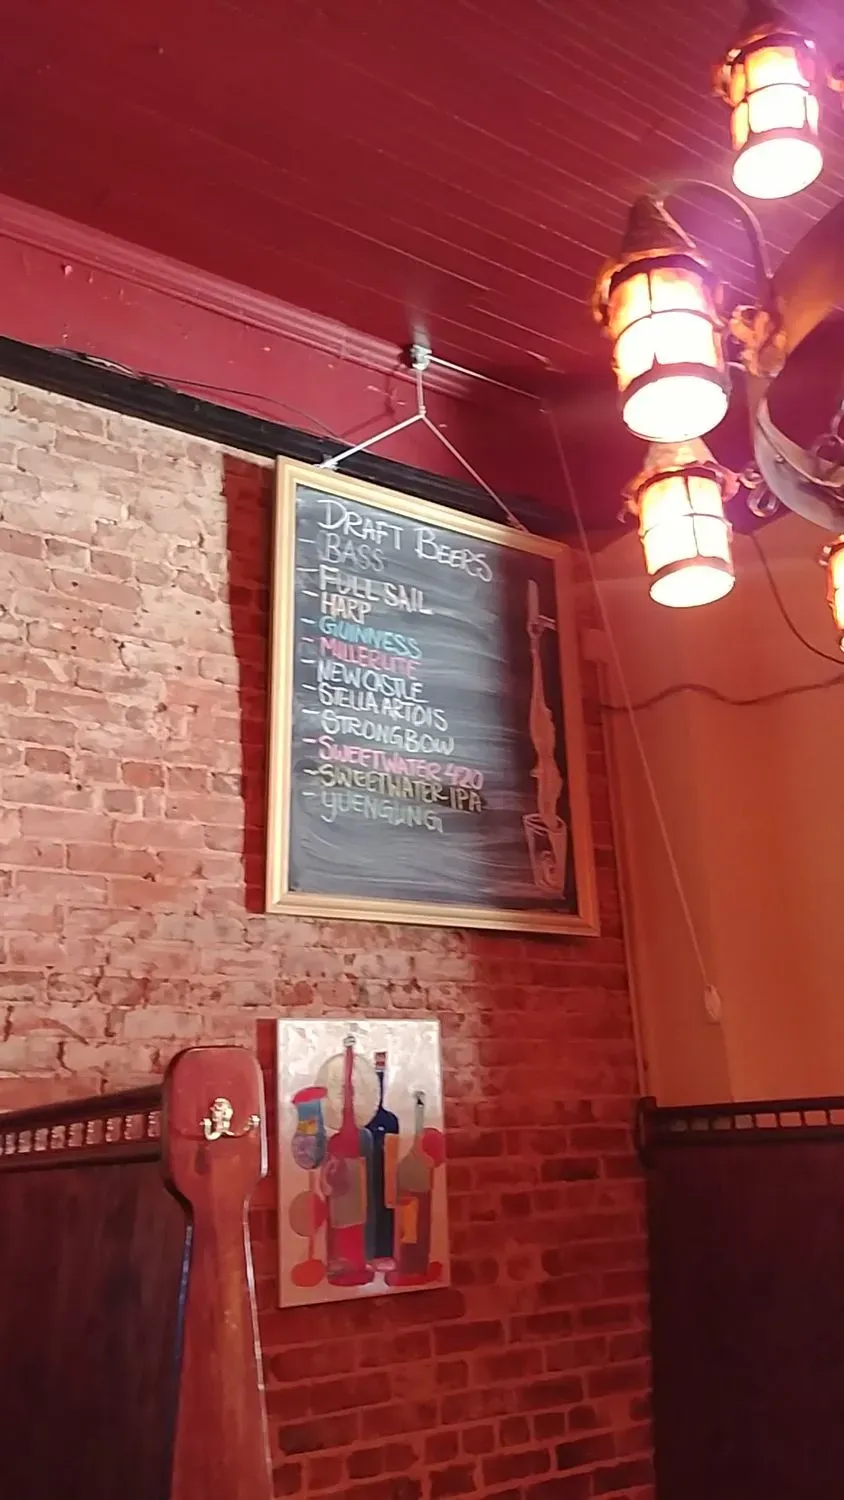 DRAFT BEERS
- BASS
- FULL SAIL
- HARP
- GUINNESS
- MILLER LITE
- NEWCASTLE
- STELLA ARTOIS
- STRONGBOW
- SWEETWATER 420
- SWEETWATER IPA
- YUENGLING